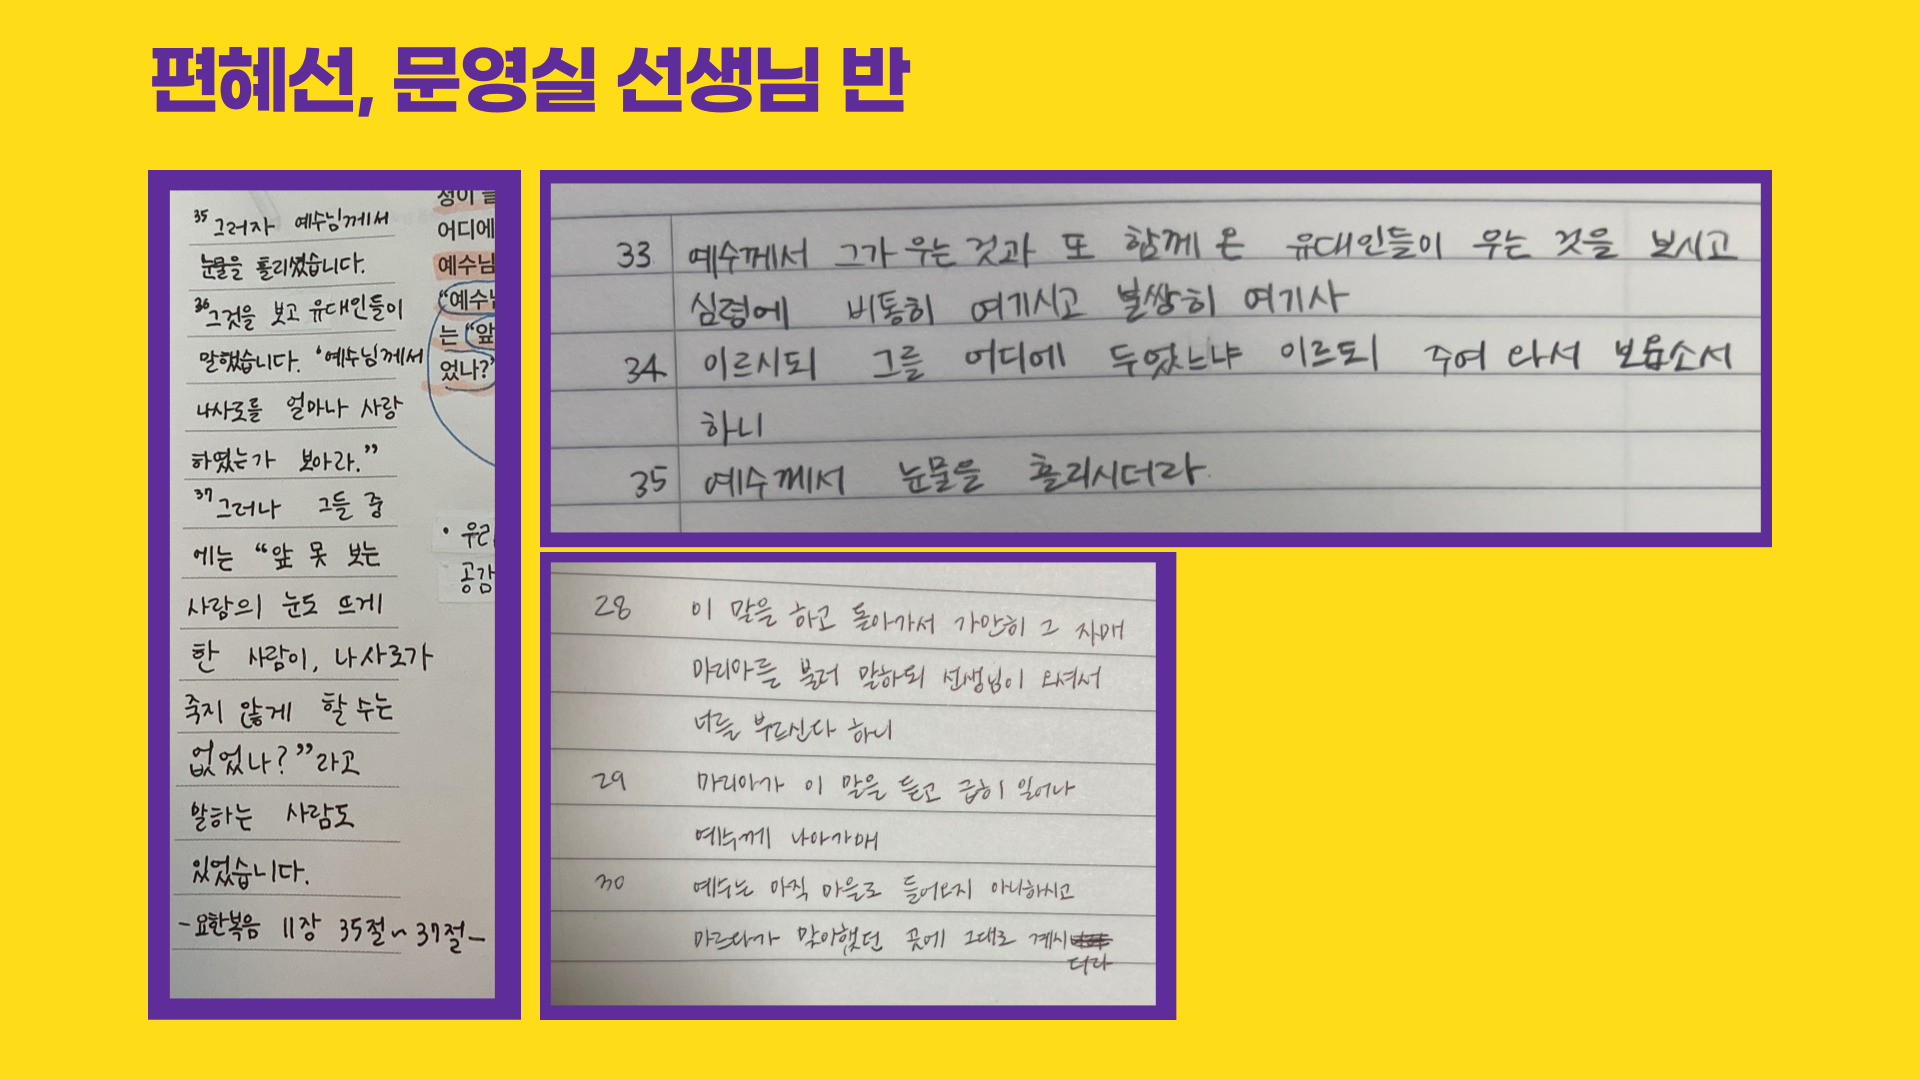 편혜선, 문영실 선생님 반
35 그러자 예수님께서
눈물을 흘리셨습니다.
36 그것을 보고 유대인들이
말했습니다. '예수님께서
나사로를 얼마나 사랑
하였는가 보아라.”
37 그러나 그들 중
에는 “앞 못 보는
사람의 눈도 뜨게
한 사람이, 나사로가
죽지 않게 할 수는
없었나?”라고
말하는 사람도
있었습니다.
-요한복음 11장 35절~37절-
성이
어디에
예수님
“예수님
는 “앞
었나?”
• 우리
공감
33 예수께서 그가 우는 것과 또 함께 온 유대인들이 우는 것을 보시고
심령에 비통히 여기시고 불쌍히 여기사
34 이르시되 그를 어디에 두었느냐 이르되 주여 와서 보옵소서
하니
35 예수께서 눈물을 흘리시더라.
28 이 말을 하고 돌아가서 가만히 그 자매
마리아를 불러 말하되 선생님이 오셔서
너를 부르신다 하니
29 마리아가 이 말을 듣고 급히 일어나
예수께 나아가매
30 예수는 아직 마을로 들어오지 아니하시고
마르다가 맞이했던 곳에 그대로 계시
더라